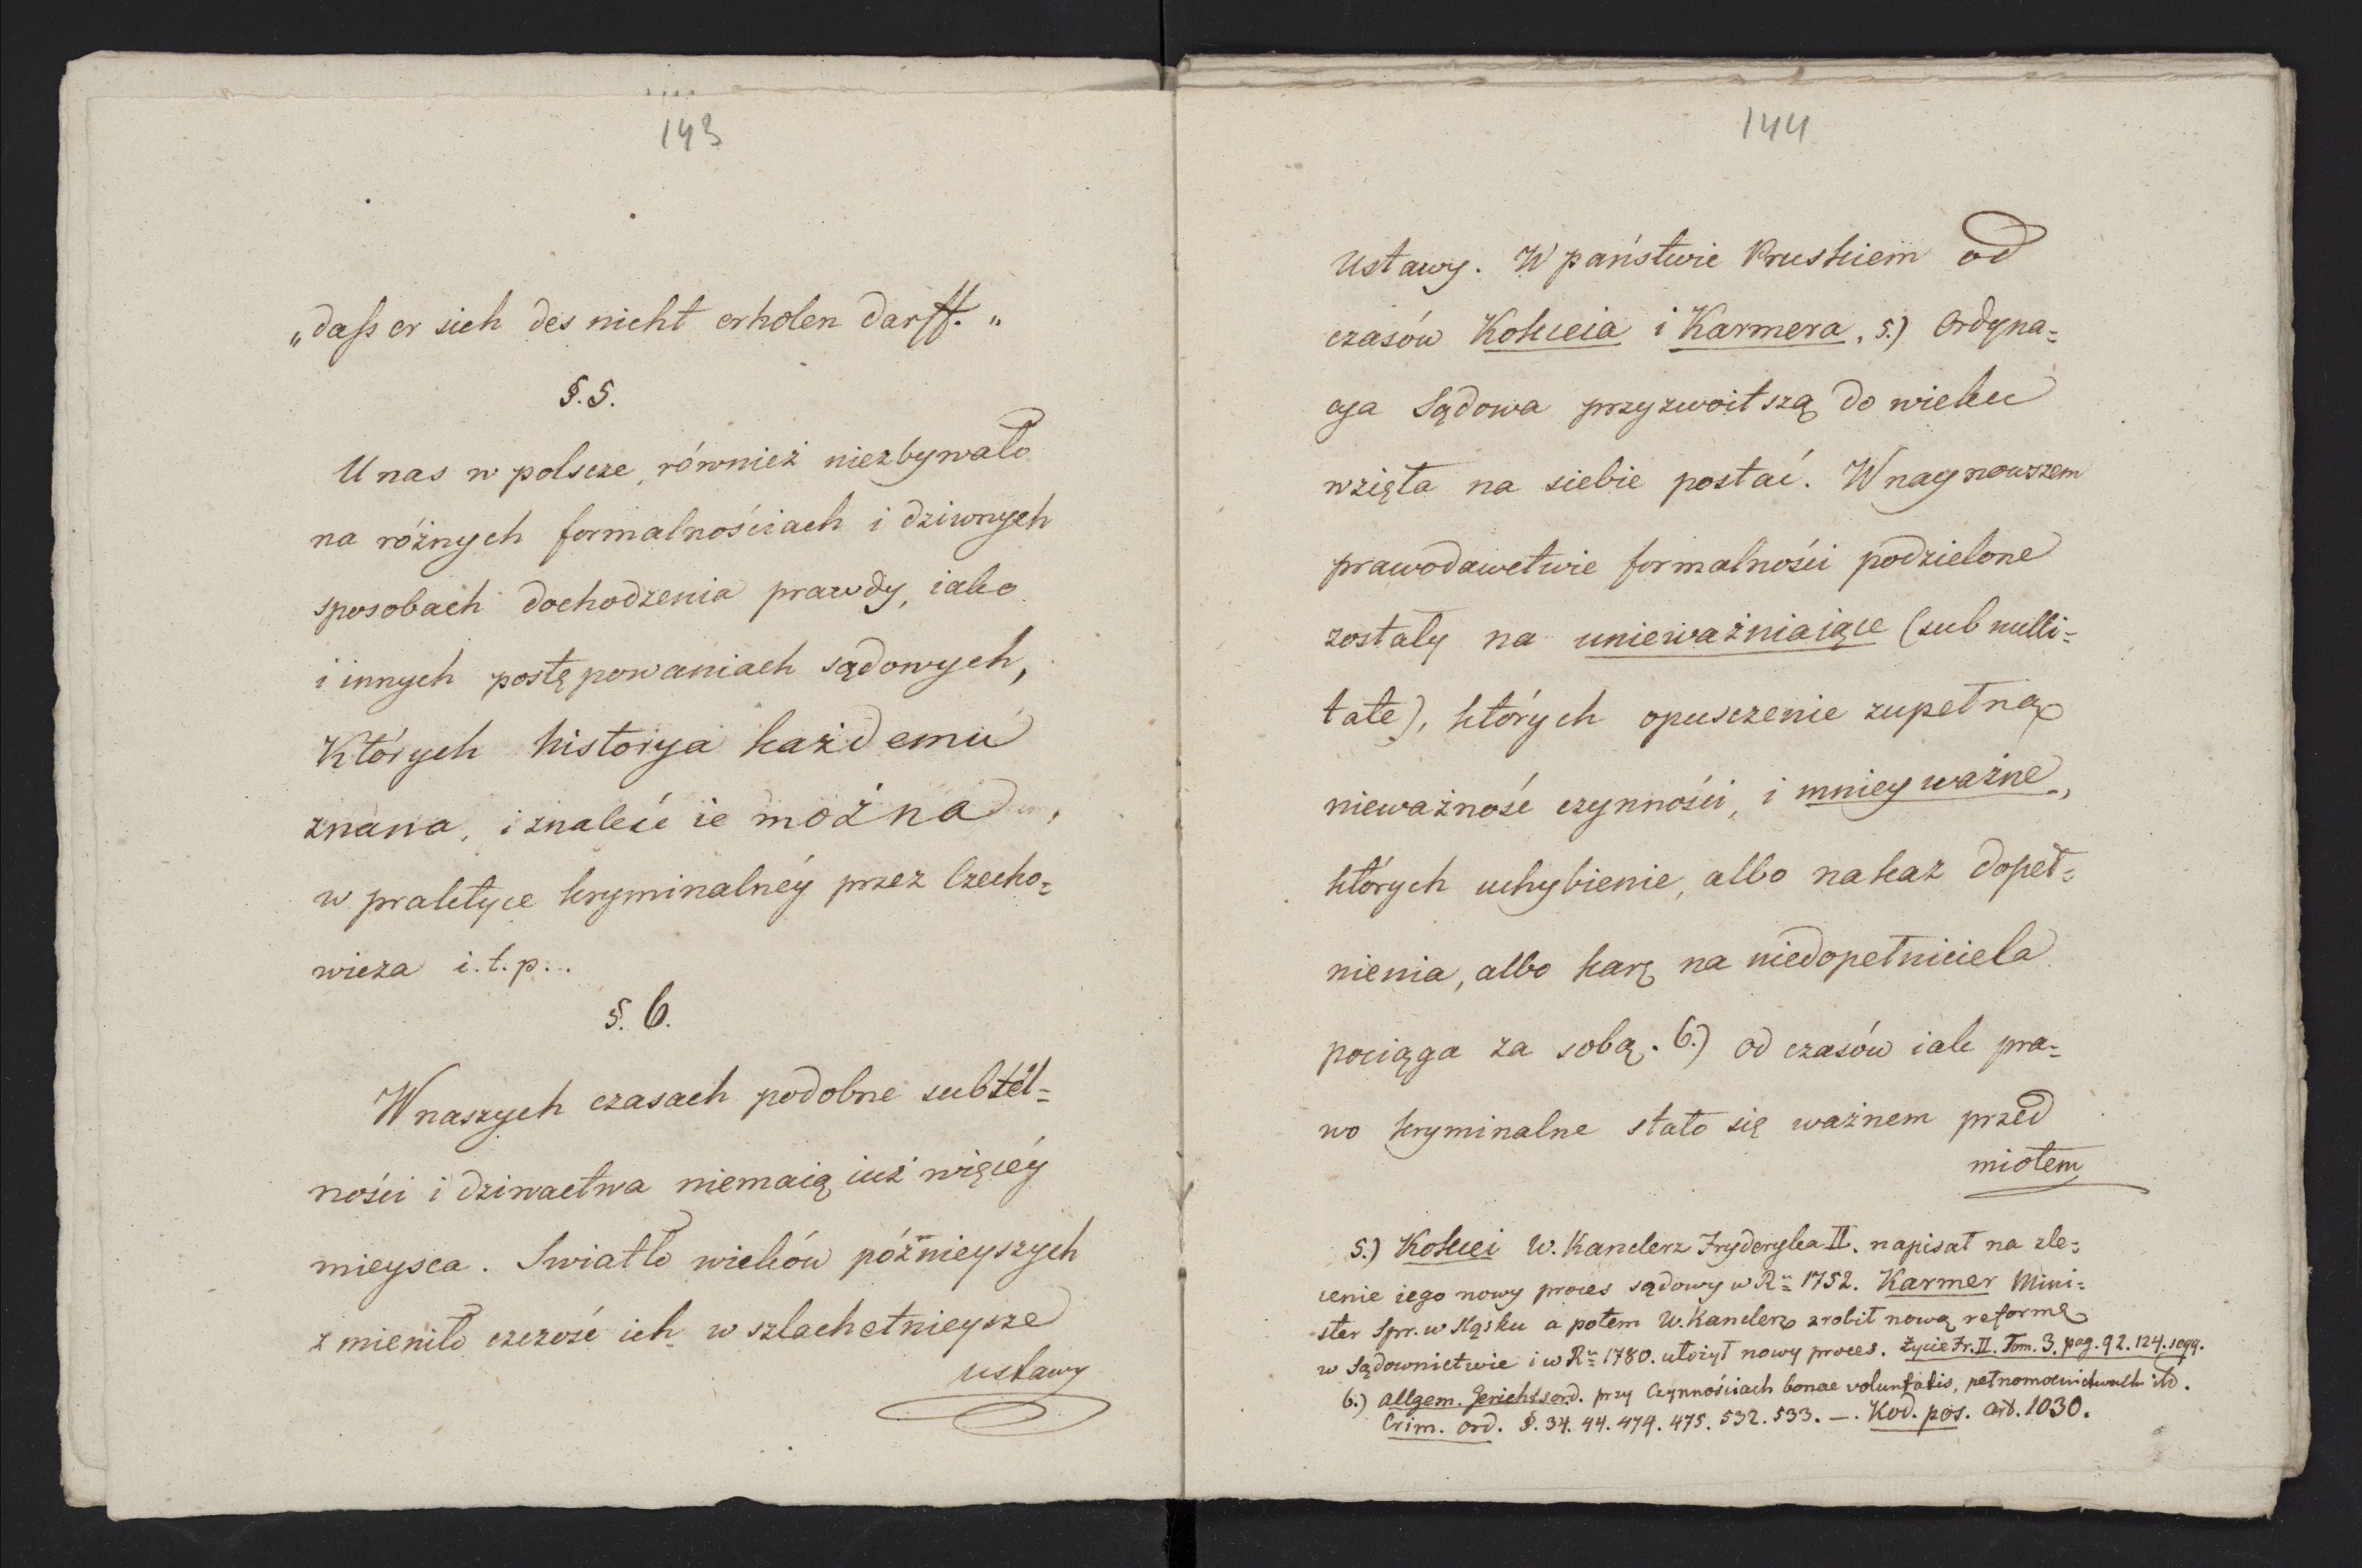 143
„daſs er sich des nicht erholen darff.„
§. 5.
U nas w polscze, również niezbywało
na różnych formalnościach i dziwnych
sposobach dochodzenia prawdy, iako
i innych postępowaniach sądowych,
Których historya każdemu
znana, i znaleść ie można
w praktyce kryminalnéy przez Czecho=
wicza i.t.p...
§. 6.
W naszych czasach podobne subtél=
ności i dziwactwa niemaią iuż więcéy
mieysca. Swiatło wieków późnieyszych
zmieniło czczość ich w szlachetnieysze
ustawy
144
Ustawy. W państwie Pruskiem od
czasów Kokceia i Karmera, 5.) Ordyna=
cya Sądowa przyzwoitszą do wieku
wzięła na siebie postać. W naynowszem
prawodawctwie formalności podzielone
zostały na unieważniaiące (sub nulli=
tate), których opusczenie zupełną
nieważność czynności, i mniey ważne,
których uchybienie, albo nakaz dopeł=
nienia, albo karę na niedopełniciela
pociąga za sobą. 6.) od czasów iak pra=
wo kryminalne stało się ważnem przed
miotem
5.) Kokcei W. Kanclerz Fryderyka II. napisał na zle=
cenie iego nowy proces sądowy w Ru 1752. Karmer Mini=
ster Spr. w Sląsku a potem W. Kanclerz zrobił nową reformę
w Sądownictwie i w Ru 1780. ułożył nowy proces. Życie Fr. II. Tom. 3. pag. 92. 124. seqq.
6.) Allgem. Gerichtsord. przy Czynnościach bonae voluntatis, pełnomocnictwach itd.
Crim. Ord. §. 34. 44. 474. 475. 532. 533. –. Kod. pos. Art. 1030.